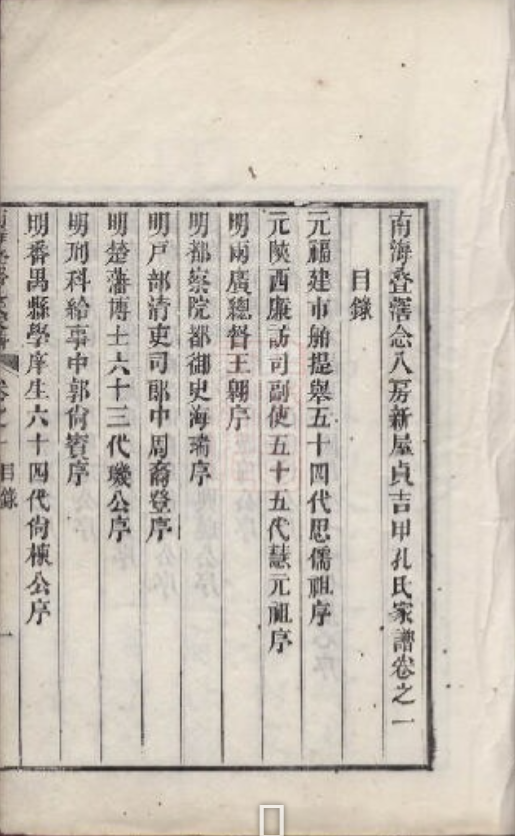 南海叠滘念八房新屋貞吉甲孔氏家譜卷之一
目錄
元福建市舶提舉五十四代思儒祖序
元陝西廉訪司副使五十五代慧元祖序
明兩廣總督王翱序
明都察院都御史海瑞序
明戸部清吏司郎中周裔登序
明楚藩博士六十三代璣公序
明刑科給事中郭尙賓序
明番禺縣學庠生六十四代尙棟公序
卷之一 目錄 一